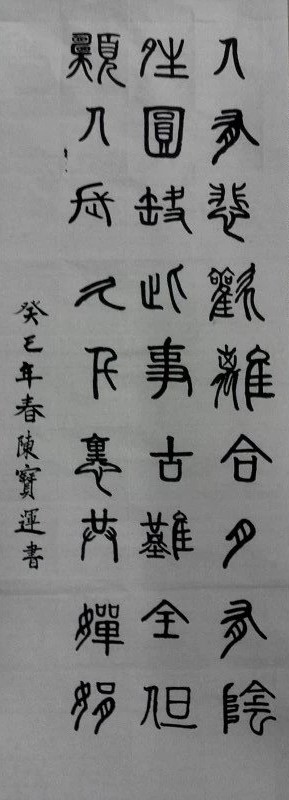 人有悲歡離合月有陰
晴圓缺此事古難全但
願人長久千裏共嬋娟
癸巳年春陳寶運書